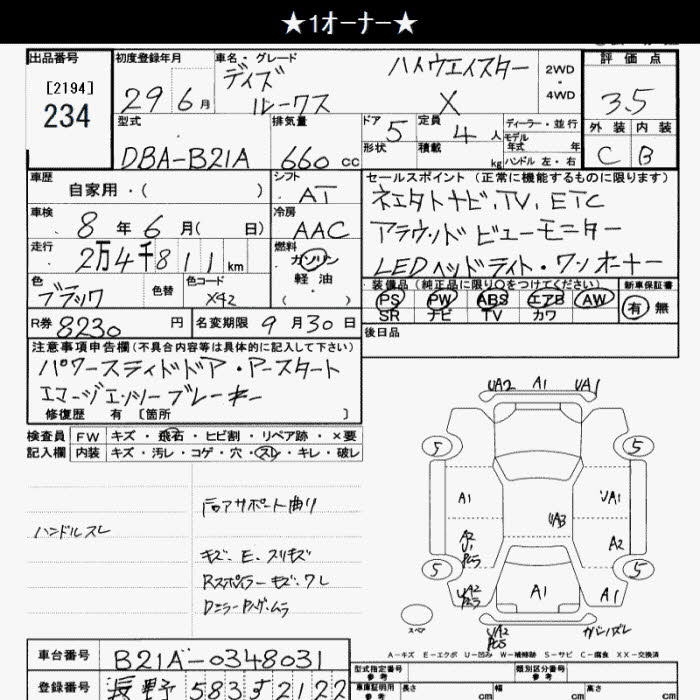 ★1オーナー★
出品番号
[2194]
234
初度登録年月
29 6月
車名・グレード
デイズ ハイウエイスター
ルークス X
2WD
・
4WD
評価点
3.5
外装 内装
C B
型式
DBA-B21A
排気量
660 cc
ドア 5
形状
定員 4 人
積載 kg
ディーラー・並行
モデル
年式 年
ハンドル 左・右
車歴
自家用・( )
シフト
AT
車検
8年 6月( 日)
冷房
AAC
走行
2万4千811km
燃料
ガソリン
軽油
( )
色
ブラック
色替
色コード
X42
R券 8230 円
名変期限 9月30日
セールスポイント (正常に機能するものに限ります)
ネエタトナビ、TV、ETC
アラウンドビューモニター
LEDヘッドライト・ワンオーナー
装備品(純正品に限り○をつけてください)
PS PW ABS エアB AW
SR ナビ TV カワ
新車保証書
有 無
後日品
注意事項申告欄(不具合内容等は具体的に記入して下さい)
パワースライドドア・アースタート
エマージエンシーブレーキー
修復歴 有 〔箇所 〕
検査員 FW キズ・飛石・ヒビ割・リペア跡・×要
記入欄 内装 キズ・汚レ・コゲ・穴・スレ・キレ・破レ
ハンドルスレ
右アサポート曲り
キズ、E、スリキズ
Rスポイラーキズ、ワレ
UA2 A1 UA1
5 5
A1 UA1
UA3
A2 A2
5 5
A1 A1
スペア
A-キズ E-エクボ U-凹み W-補修跡 S-サビ C-腐食 XX-交換済
車台番号 B21A-0348031
登録番号 長野 583 す 2122
型式指定番号
参考
類別区分番号
参考
車庫証明用
参考
長さ cm
幅 cm
高さ cm